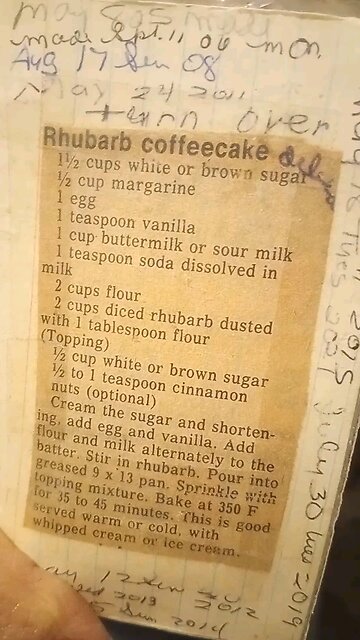 May
made Sept. 11 06 mon.
Aug 17 Sun 08
May 24 2011
turn over
Rhubarb coffeecake
1½ cups white or brown sugar
½ cup margarine
1 egg
1 teaspoon vanilla
1 cup buttermilk or sour milk
1 teaspoon soda dissolved in
milk
2 cups flour
2 cups diced rhubarb dusted
with 1 tablespoon flour
(Topping)
½ cup white or brown sugar
½ to 1 teaspoon cinnamon
nuts (optional)
Cream the sugar and shorten-
ing, add egg and vanilla. Add
flour and milk alternately to the
batter. Stir in rhubarb. Pour into
greased 9 x 13 pan. Sprinkle with
topping mixture. Bake at 350 F
for 35 to 45 minutes. This is good
served warm or cold, with
whipped cream or ice cream.
2015
July 30 2019
2012
2013
Sun 2014